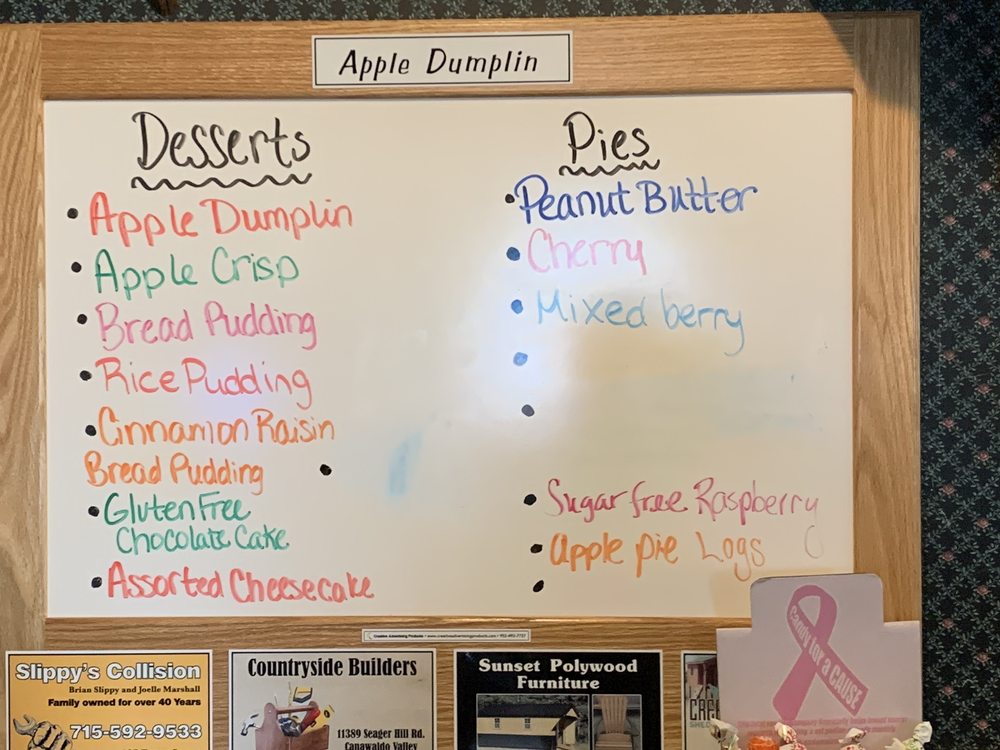 Apple Dumplin
Desserts
• Apple Dumplin
• Apple Crisp
• Bread Pudding
• Rice Pudding
• Cinnamon Raisin
Bread Pudding •
• Gluten Free
Chocolate Cake
• Assorted Cheesecake
Pies
• Peanut Butter
• Cherry
• Mixed berry
•
•
• Sugar free Raspberry
• Apple pie Logs
•
Slippy's Collision
Brian Slippy and Joelle Marshall
Family owned for over 40 Years
715-592-9533
Countryside Builders
11389 Seager Hill Rd.
Sunset Polywood
Furniture
Candy for a CAUSE